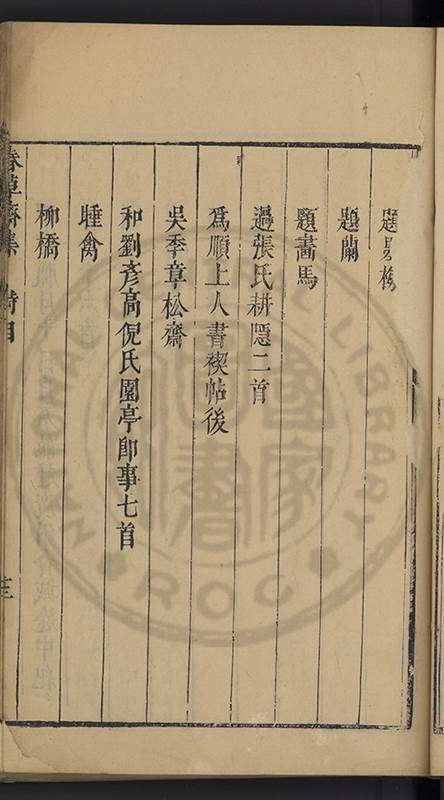 題墨梅
題蘭
題畵馬
過張氏耕隱二首
爲順上人書禊帖後
吳季章松齋
和劉彥高倪氏園亭卽事七首
睡禽
柳橋
春草齋集 詩目